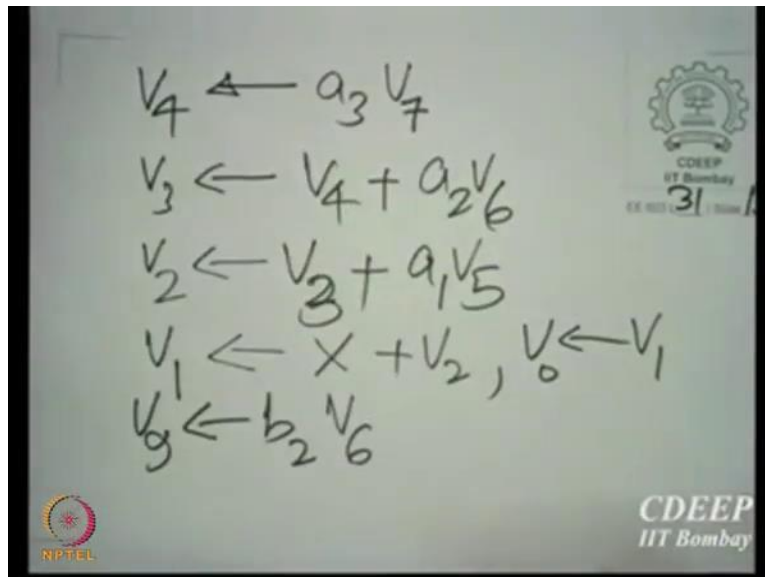 V₄ ← a₃ V₇
V₃ ← V₄ + a₂V₆
V₂ ← V₃ + a₁V₅
V₁ ← X + V₂ , V₀ ← V₁
V₉ ← b₂ V₆
CDEEP
IIT Bombay
31
NPTEL
CDEEP
IIT Bombay